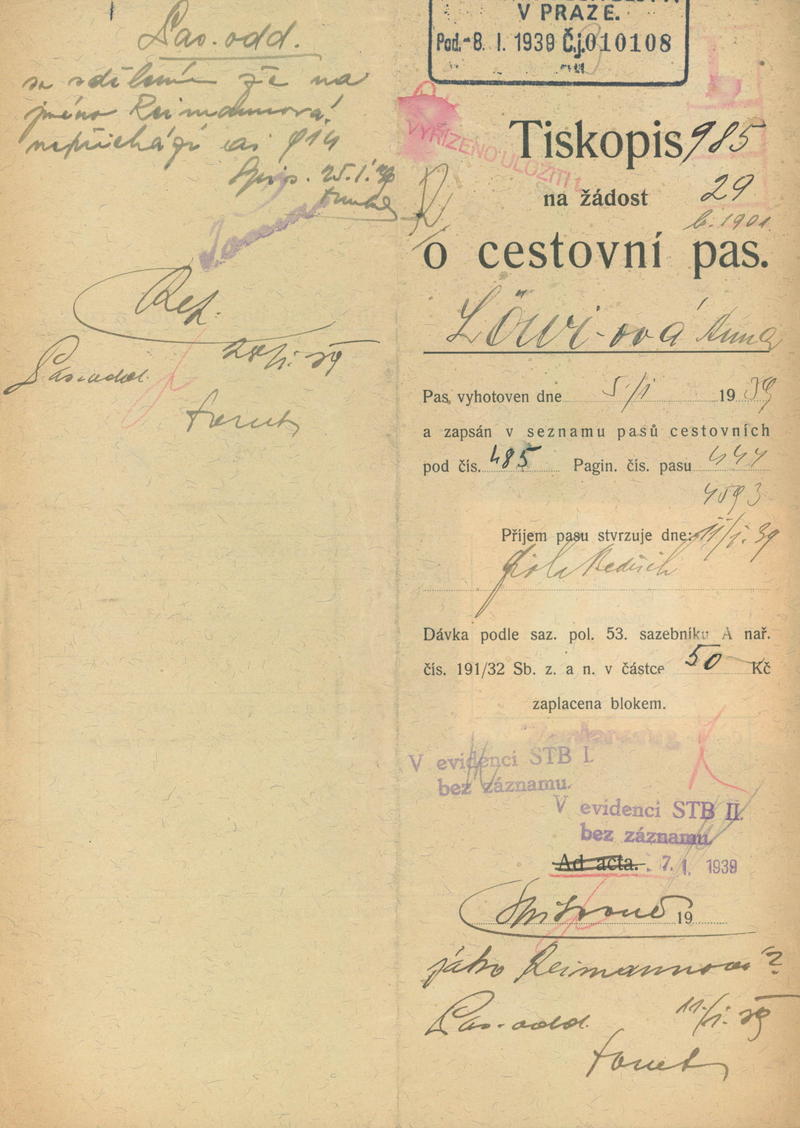 Pas. odd.
se sdělením že na
jméno Reimannová
nepřichází
25.I.
Ref.
Pas. odd.
V PRAZE.
Pod. -8. I. 1939 Č.j. 010108
VYŘÍZENO ULOŽITI
Tiskopis 985
na žádost 29
b. 1901
o cestovní pas.
Löwi-ová Anna
Pas vyhotoven dne 5/I 1939
a zapsán v seznamu pasů cestovních
pod čís. 485 Pagin. čís. pasu 441
4593
Příjem pasu stvrzuje dne: 11/I. 39
Dávka podle saz. pol. 53. sazebníku A nař.
čís. 191/32 Sb. z. a n. v částce 50 Kč
zaplacena blokem.
V evidenci STB I.
bez záznamu.
V evidenci STB II.
bez záznamu.
Ad acta. 7. I. 1939
19
jako Reimannová?
Pas. odd. 11/I. 39